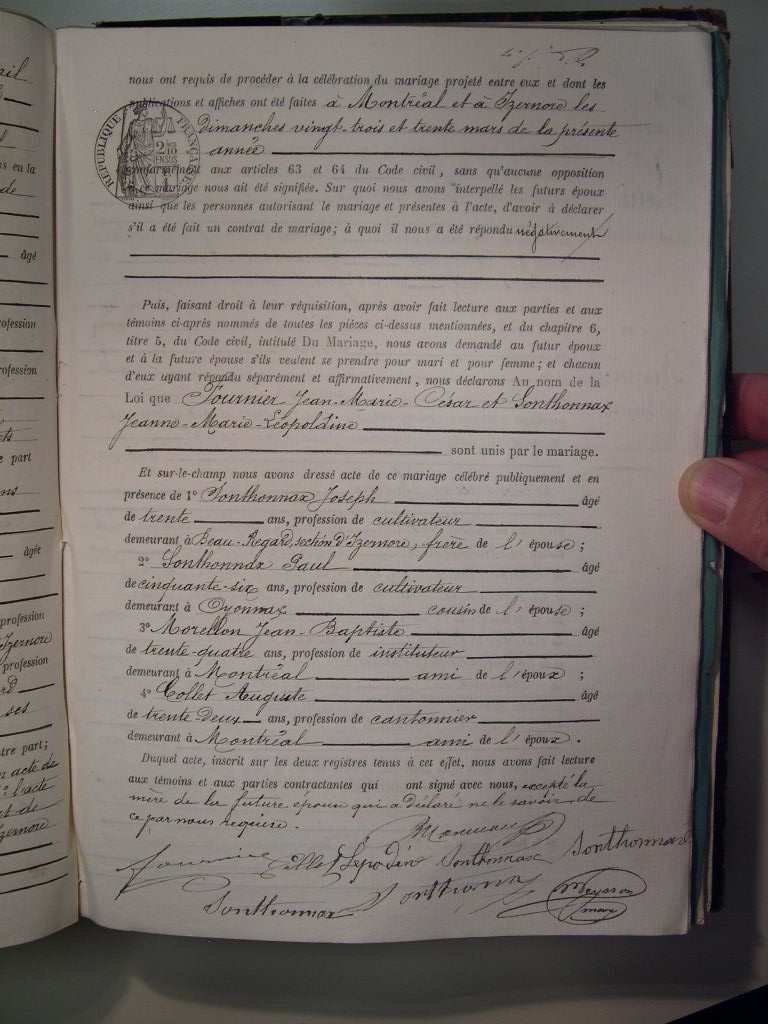 nous ont requis de procéder à la célébration du mariage projeté entre eux et dont les
publications et affiches ont été faites à Montréal et à Izernore les
Dimanches vingt-trois et trente mars de la présente
année
conformément aux articles 63 et 64 du Code civil, sans qu'aucune opposition
à ce mariage nous ait été signifiée. Sur quoi nous avons interpellé les futurs époux
ainsi que les personnes autorisant le mariage et présentes à l'acte, d'avoir à déclarer
s'il a été fait un contrat de mariage; à quoi il nous a été répondu négativement
Puis, faisant droit à leur réquisition, après avoir fait lecture aux parties et aux
témoins ci-après nommés de toutes les pièces ci-dessus mentionnées, et du chapitre 6,
titre 5, du Code civil, intitulé Du Mariage, nous avons demandé au futur époux
et à la future épouse s'ils veulent se prendre pour mari et pour femme; et chacun
d'eux ayant répondu séparément et affirmativement, nous déclarons Au nom de la
Loi que Fournier Jean-Marie-César et Sonthonnax
Jeanne-Marie-Léopoldine
sont unis par le mariage.
Et sur-le-champ nous avons dressé acte de ce mariage célébré publiquement et en
présence de 1º Sonthonnax Joseph âgé
de trente ans, profession de cultivateur
demeurant à Beau-Regard, section d'Izernore, frère de l'épouse;
2º Sonthonnax Paul âgé
de cinquante-six ans, profession de cultivateur
demeurant à Oyonnax cousin de l'épouse;
3º Morellon Jean-Baptiste âgé
de trente-quatre ans, profession de instituteur
demeurant à Montréal ami de l'époux;
4º Collet Auguste âgé
de trente-deux ans, profession de cantonnier
demeurant à Montréal ami de l'époux.
Duquel acte, inscrit sur les deux registres tenus à cet effet, nous avons fait lecture
aux témoins et aux parties contractantes qui ont signé avec nous, excepté la
mère de la future épouse qui a déclaré ne le savoir de
ce par nous requise.
Sonthonnax Sonthonnax
Sonthonnax
RÉPUBLIQUE FRANÇAISE